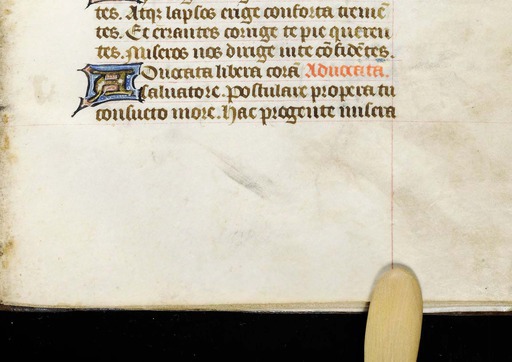 tes. Atq; lapsos erige conforta tremē
tes. Et errantes corrige te pie queren
tes. Miseros nos dirige in te cōfidētes.
Aduocata libera corā Aduocata.
saluatore. Postulare propera tu
consueto more. hac pro gente misera